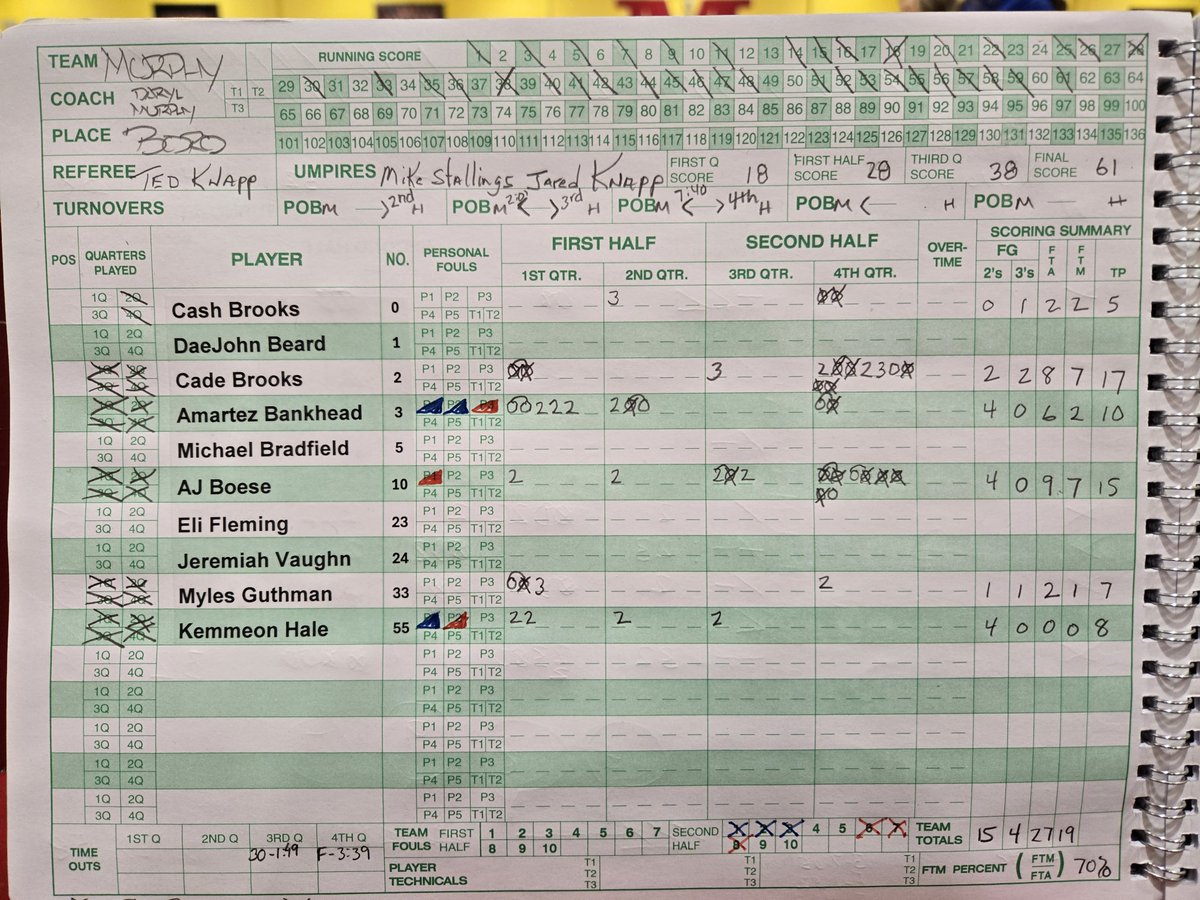 TEAM MURPHY RUNNING SCORE 1 2 3 4 5 6 7 8 9 10 11 12 13 14 15 16 17 18 19 20 21 22 23 24 25 26 27 28
29 30 31 32 33 34 35 36 37 38 39 40 41 42 43 44 45 46 47 48 49 50 51 52 53 54 55 56 57 58 59 60 61 62 63 64
COACH DARYL MURPHY T1 T2 T3
65 66 67 68 69 70 71 72 73 74 75 76 77 78 79 80 81 82 83 84 85 86 87 88 89 90 91 92 93 94 95 96 97 98 99 100
PLACE BORO
101 102 103 104 105 106 107 108 109 110 111 112 113 114 115 116 117 118 119 120 121 122 123 124 125 126 127 128 129 130 131 132 133 134 135 136
REFEREE TED KNAPP UMPIRES Mike Stallings Jared Knapp FIRST Q SCORE 18 FIRST HALF SCORE 28 THIRD Q SCORE 38 FINAL SCORE 61
TURNOVERS POB M 2nd H POB M 3rd H POB M 7:40 4th H POB M H POB M H
POS QUARTERS PLAYED PLAYER NO. PERSONAL FOULS FIRST HALF SECOND HALF OVER-TIME SCORING SUMMARY
1ST QTR. 2ND QTR. 3RD QTR. 4TH QTR. FG 2's 3's FTA FTM TP
1Q 2Q 3Q 4Q Cash Brooks 0 P1 P2 P3 P4 P5 T1 T2 3 0 0 0 1 2 2 5
1Q 2Q 3Q 4Q DaeJohn Beard 1 P1 P2 P3 P4 P5 T1 T2
Cade Brooks 2 P1 P2 P3 P4 P5 T1 T2 0 0 3 2 0 0 2 3 0 0 0 0 2 2 8 7 17
Amartez Bankhead 3 P4 P5 T1 T2 0 0 2 2 2 2 0 0 0 0 4 0 6 2 10
1Q 2Q 3Q 4Q Michael Bradfield 5 P1 P2 P3 P4 P5 T1 T2
AJ Boese 10 P1 P2 P3 P4 P5 T1 T2 2 2 2 0 2 4 0 9 7 15
1Q 2Q 3Q 4Q Eli Fleming 23 P1 P2 P3 P4 P5 T1 T2
1Q 2Q 3Q 4Q Jeremiah Vaughn 24 P1 P2 P3 P4 P5 T1 T2
Myles Guthman 33 P1 P2 P3 P4 P5 T1 T2 0 0 3 2 1 1 2 1 7
Kemmeon Hale 55 P3 P4 P5 T1 T2 2 2 2 2 4 0 0 0 8
1Q 2Q 3Q 4Q P1 P2 P3 P4 P5 T1 T2
1Q 2Q 3Q 4Q P1 P2 P3 P4 P5 T1 T2
1Q 2Q 3Q 4Q P1 P2 P3 P4 P5 T1 T2
1Q 2Q 3Q 4Q P1 P2 P3 P4 P5 T1 T2
1Q 2Q 3Q 4Q P1 P2 P3 P4 P5 T1 T2
TIME OUTS 1ST Q 2ND Q 3RD Q 30-1:49 4TH Q F-3:39
TEAM FOULS FIRST HALF 1 2 3 4 5 6 7 8 9 10 SECOND HALF 4 5 6 7 8 9 10 TEAM TOTALS 15 4 27 19
PLAYER TECHNICALS T1 T2 T3 T1 T2 T3 T1 T2 T3 FTM PERCENT (FTM FTA) 70%